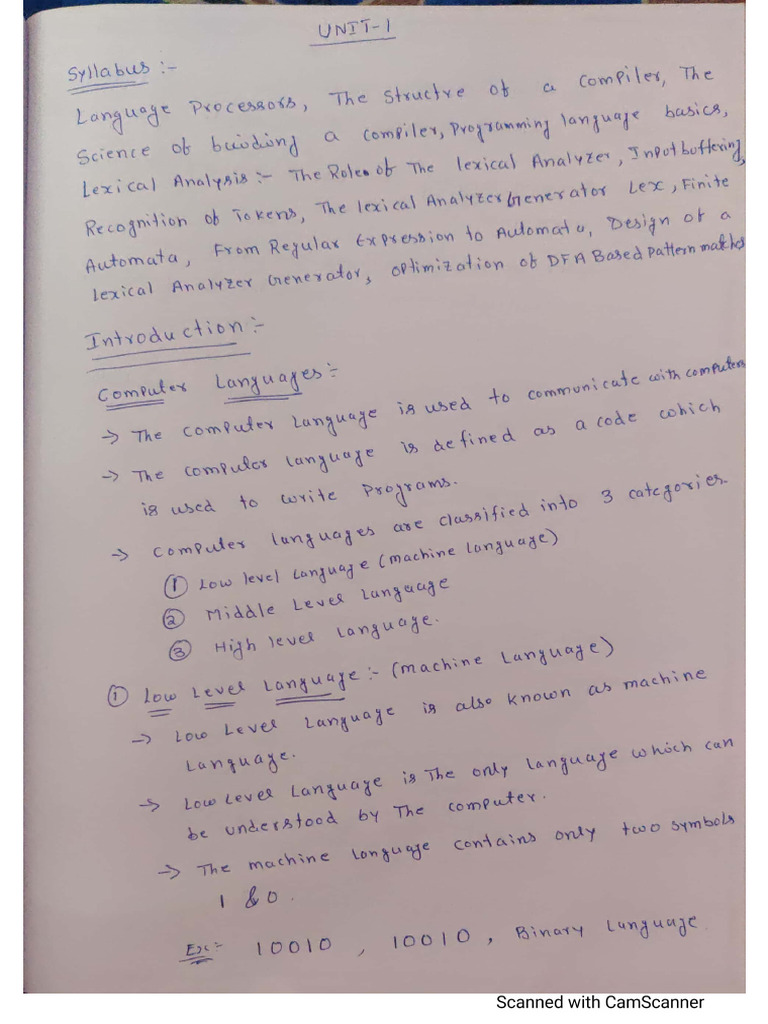 UNIT-1
Syllabus :-
Language Processors, The Structre of a compiler, The
Science of building a compiler, Programming language basics,
Lexical Analysis :- The Role of The lexical Analyzer, Input buffering,
Recognition of Tokens, The lexical Analyzer Generator Lex, Finite
Automata, From Regular Expression to Automata, Design of a
lexical Analyzer Generator, optimization of DFA Based Pattern
Introduction :-
Computer Languages :-
-> The computer Language is used to communicate with computers
-> The computer language is defined as a code which
is used to write Programs.
-> computer languages are classified into 3 categories.
① Low level Language (machine language)
② Middle Level Language
③ High level Language.
① Low Level Language :- (Machine Language)
-> Low Level Language is also known as machine
Language.
-> Low Level Language is The only language which can
be understood by The computer.
-> The machine language contains only two symbols
1 & 0.
Ex :- 10010 , 10010 , Binary Language.
Scanned with CamScanner